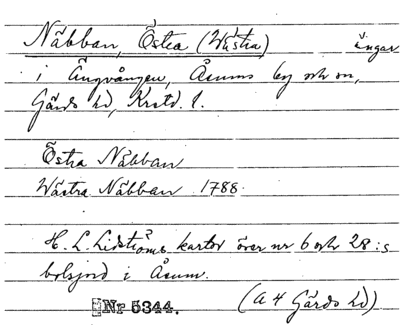 Näbban, Östra (Västra) ängar
i Ängvången, Åsums by och sn,
Gärds hd, Krstd. l.
Östra Näbban
Wästra Näbban 1788
H. L. Lidströms kartor över nr 6 och 28:s
bolsjord i Åsum.
Nr 5344. (A 4 Gärds hd)